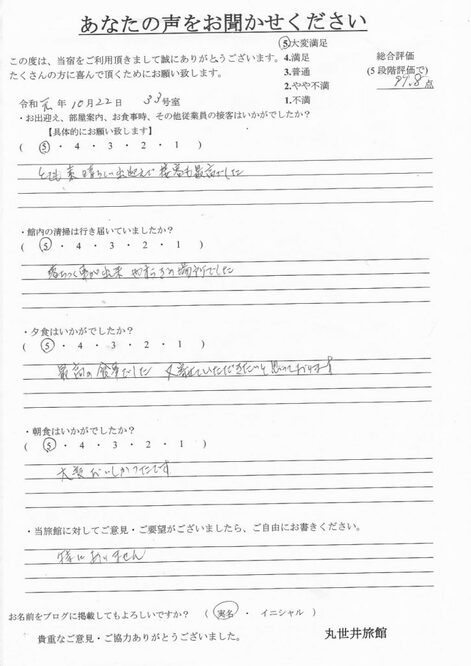 あなたの声をお聞かせください
この度は、当宿をご利用頂きまして誠にありがとうございます。
たくさんの方に喜んで頂くためにお願い致します。
5.大変満足
4.満足
3.普通
2.やや不満
1.不満
総合評価
(5段階評価で)
点
令和元年10月22日 33号室
・お出迎え、部屋案内、お食事時、その他従業員の接客はいかがでしたか？
【具体的にお願い致します】
( 5 ・ 4 ・ 3 ・ 2 ・ 1 )
とても素晴らしい出迎えで 接客も最高でした
・館内の清掃は行き届いていましたか？
( 5 ・ 4 ・ 3 ・ 2 ・ 1 )
落ちつく事が出来 やすらぎの場所でした
・夕食はいかがでしたか？
( 5 ・ 4 ・ 3 ・ 2 ・ 1 )
最高の食事でした 又寄せていただきたいと思っております
・朝食はいかがでしたか？
( 5 ・ 4 ・ 3 ・ 2 ・ 1 )
大変おいしかったです
・当旅館に対してご意見・ご要望がございましたら、ご自由にお書きください。
特にありません
お名前をブログに掲載してもよろしいですか？ ( 実名 ・ イニシャル )
貴重なご意見・ご協力ありがとうございました。
丸世井旅館